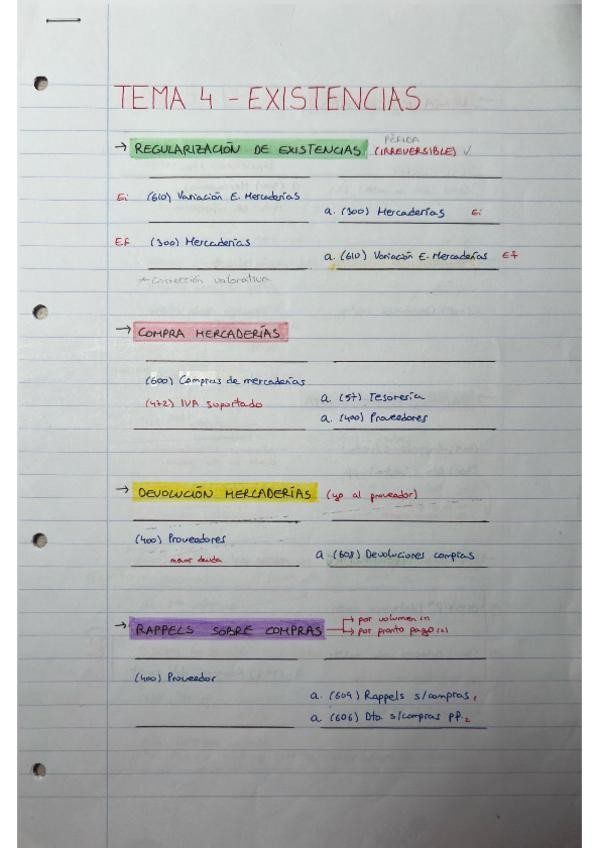 TEMA 4 - EXISTENCIAS
PÉRDIDA
→ REGULARIZACIÓN DE EXISTENCIAS (IRREVERSIBLE)
Ei (610) Variación E. Mercaderías
a. (300) Mercaderías Ei
Ef (300) Mercaderías
a. (610) Variación E. Mercaderías Ef
* Corrección valorativa
→ COMPRA MERCADERÍAS
(600) Compras de mercaderías
(472) IVA suportado a. (57) Tesorería
a. (400) Proveedores
→ DEVOLUCIÓN MERCADERÍAS (yo al proveedor)
(400) Proveedores
menor deuda a (608) Devoluciones compras
→ por volumen (1)
→ RAPPELS SOBRE COMPRAS → por pronto pago (2)
(400) Proveedor
a. (609) Rappels s/compras 1
a (606) Dto s/compras PP. 2